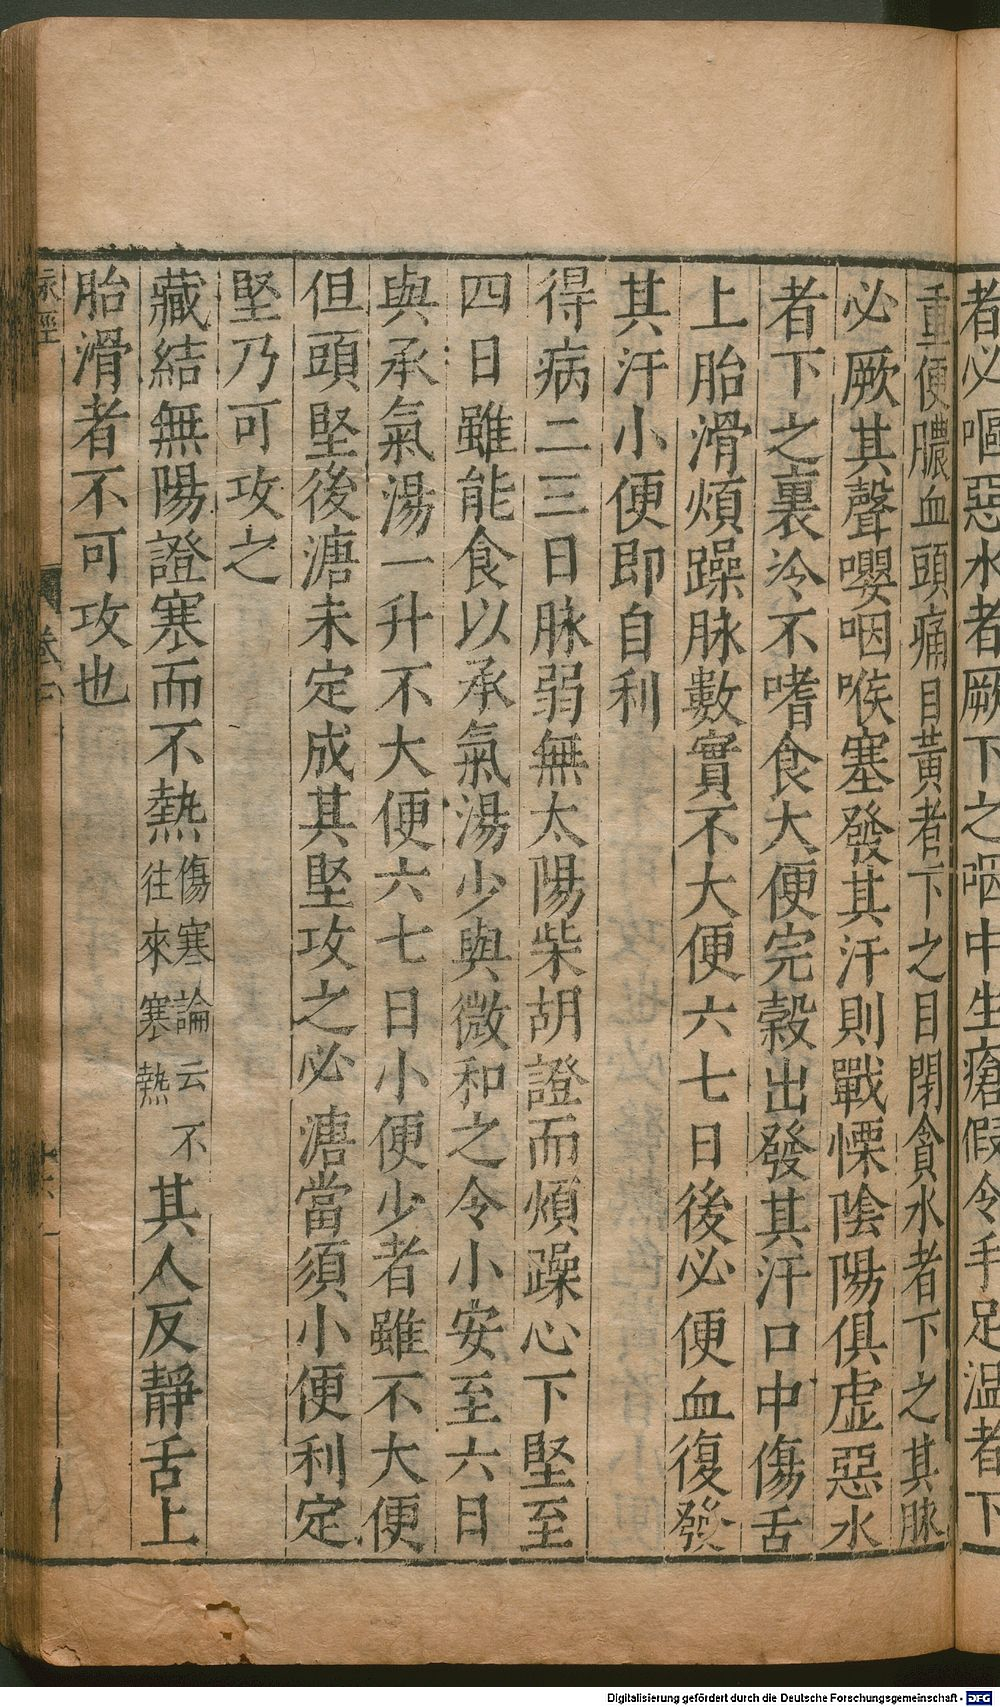 者必嘔惡水者厥下之咽中生瘡假令手足温者下
重便膿血頭痛目黃者下之目閉貪水者下之其脉
必厥其聲嚶咽喉塞發其汗則戰慄陰陽俱虛惡水
者下之裏冷不嗜食大便完穀出發其汗口中傷舌
上胎滑煩躁脉數實不大便六七日後必便血復發
其汗小便即自利
得病二三日脉弱無太陽柴胡證而煩躁心下堅至
四日雖能食以承氣湯少與微和之令小安至六日
與承氣湯一升不大便六七日小便少者雖不大便
但頭堅後溏未定成其堅攻之必溏當須小便利定
堅乃可攻之
藏結無陽證寒而不熱傷寒論云不往來寒熱其人反靜舌上
胎滑者不可攻也
脉經
卷七
Digitalisierung gefördert durch die Deutsche Forschungsgemeinschaft - DFG